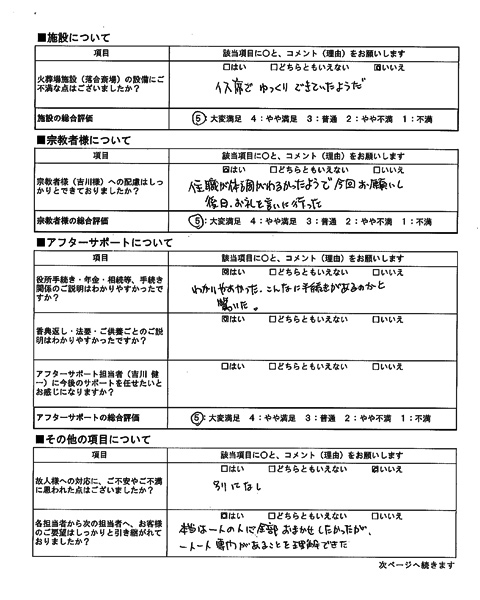 ■施設について
項目 該当項目に〇と、コメント（理由）をお願いします
火葬場施設（落合斎場）の設備にご不満な点はございましたか？
□はい □どちらともいえない ☑いいえ
イス席で ゆっくり できていたようだ
施設の総合評価 ⑤：大変満足 4：やや満足 3：普通 2：やや不満 1：不満
■宗教者様について
項目 該当項目に〇と、コメント（理由）をお願いします
宗教者様（吉川様）への配慮はしっ
かりとできておりましたか？
☑はい □どちらともいえない □いいえ
住職が体調がわるかったようで今回お願いし
後日、お礼を言いに行った
宗教者様の総合評価 ⑤：大変満足 4：やや満足 3：普通 2：やや不満 1：不満
■アフターサポートについて
項目 該当項目に〇と、コメント（理由）をお願いします
役所手続き・年金・相続等、手続き
関係のご説明はわかりやすかったで
すか？
☑はい □どちらともいえない □いいえ
わかりやすかった。こんなに手続きがあるのかと
驚いた。
香典返し・法要・ご供養ごとのご説
明はわかりやすかったですか？
☑はい □どちらともいえない □いいえ
アフターサポート担当者（吉川 健
一）に今後のサポートを任せたいと
お感じになりますか？
□はい □どちらともいえない □いいえ
アフターサポートの総合評価 ⑤：大変満足 4：やや満足 3：普通 2：やや不満 1：不満
■その他の項目について
項目 該当項目に〇と、コメント（理由）をお願いします
故人様への対応に、ご不安やご不満
に思われた点はございましたか？
□はい □どちらともいえない ☑いいえ
別になし
各担当者から次の担当者へ、お客様
のご要望はしっかりと引き継がれて
おりましたか？
☑はい □どちらともいえない □いいえ
本当は一人の人に全部おまかせしたかったが、
一人一人専門があることを理解できた
次ページへ続きます